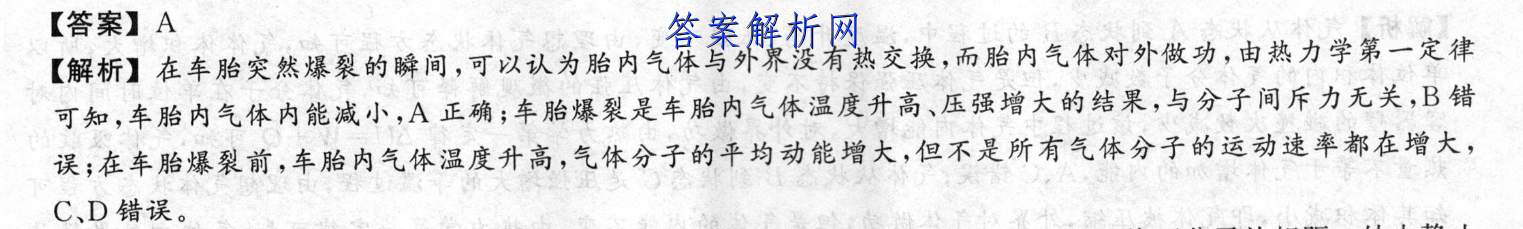 【答案】A
答案解析网
【解析】在车胎突然爆裂的瞬间,可以认为胎内气体与外界没有热交换,而胎内气体对外做功,由热力学第一定律
可知,车胎内气体内能减小,A正确;车胎爆裂是车胎内气体温度升高、压强增大的结果,与分子间斥力无关,B错
误;在车胎爆裂前,车胎内气体温度升高,气体分子的平均动能增大,但不是所有气体分子的运动速率都在增大,
C、D错误。